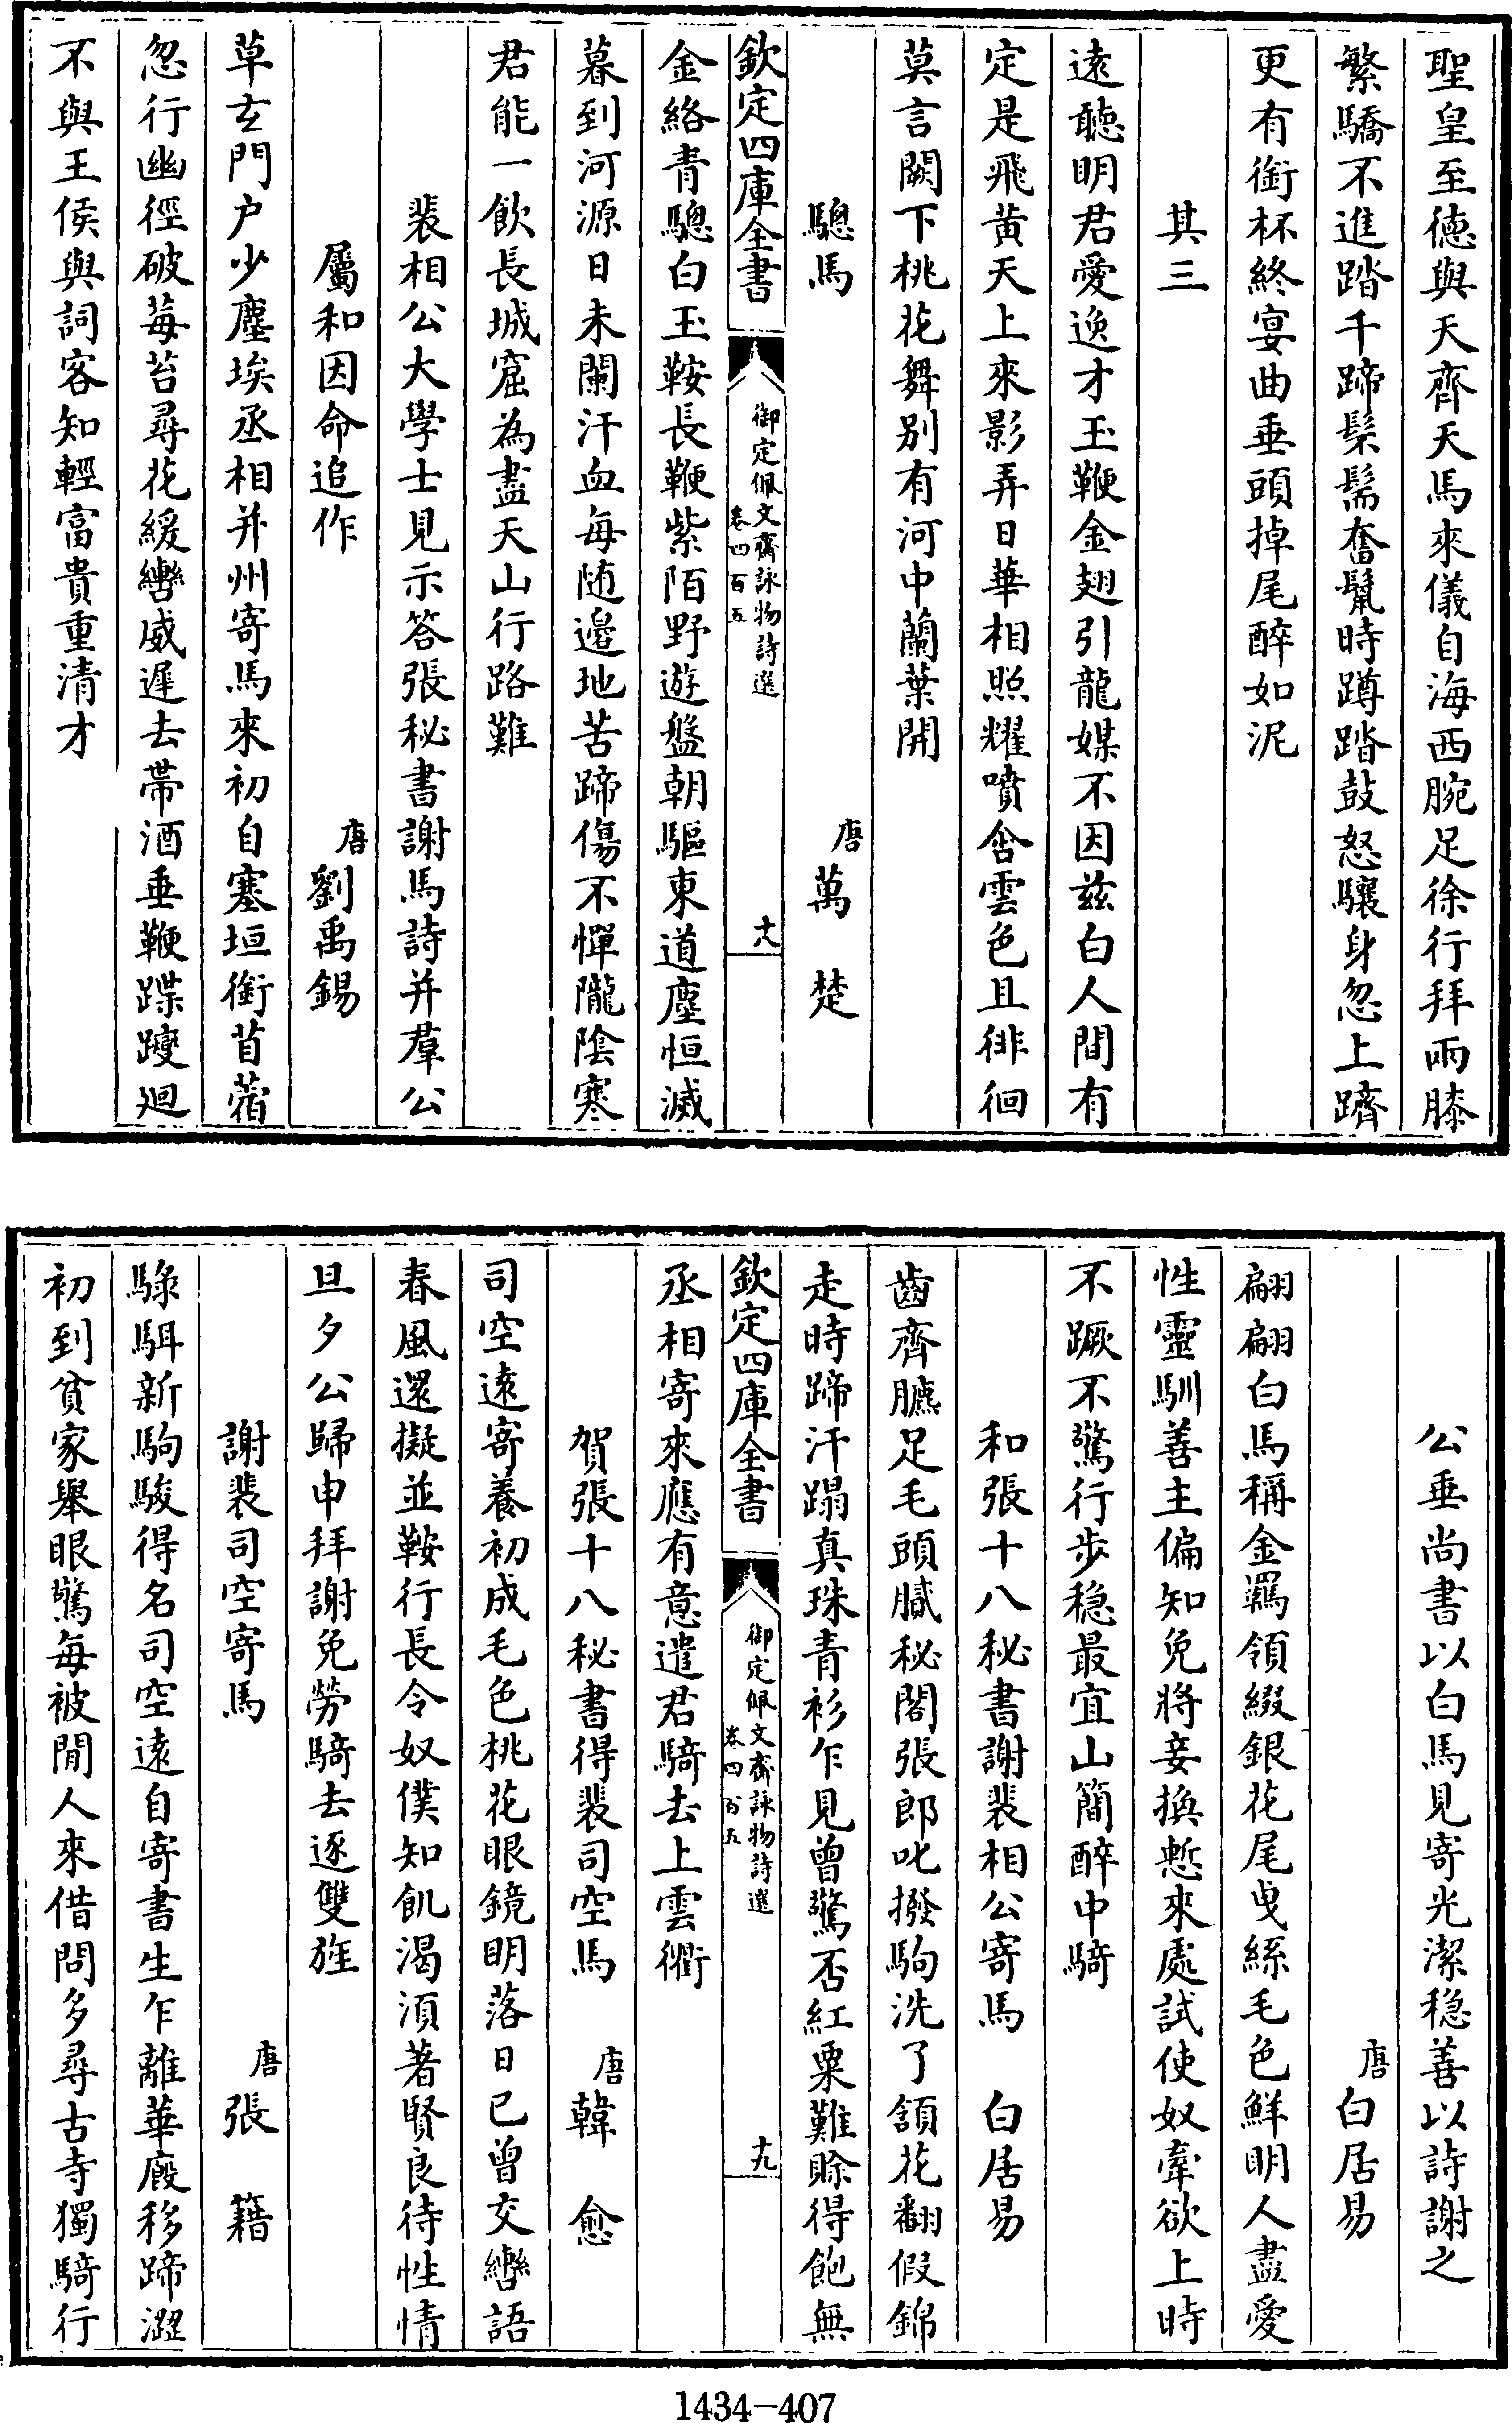 聖皇至徳與天齊天馬來儀自海西腕足徐行拜兩膝
繁驕不進踏千蹄䰄髵奮鬛時蹲踏鼓怒驤身忽上躋
更有銜杯終宴曲垂頭掉尾醉如泥
其三
遠聽明君愛逸才玉鞭金翅引龍媒不因兹白人間有
定是飛黄天上來影弄日華相照耀噴含雲色且徘徊
莫言闕下桃花舞别有河中蘭葉開
驄馬 唐萬楚
欽定四庫全書 御定佩文齋詠物詩選 卷四百五 十八
金絡青驄白玉鞍長鞭紫陌野遊盤朝驅東道塵恒滅
暮到河源日未闌汗血每随邉地苦蹄傷不憚隴隂寒
君能一飲長城窟為盡天山行路難
裴相公大學士見示答張秘書謝馬詩并羣公
屬和因命追作 唐劉禹錫
草玄門户少塵埃丞相并州寄馬來初自塞垣銜苜蓿
忽行幽徑破莓苔尋花緩轡威遲去帶酒垂鞭蹀躞廻
不與王侯與詞客知輕富貴重清才
公垂尚書以白馬見寄光潔稳善以詩謝之
唐白居易
翩翩白馬稱金羈領綴銀花尾曳絲毛色鮮明人盡愛
性靈馴善主偏知免將妾換慙來處試使奴牽欲上時
不蹶不驚行步稳最宜山簡醉中騎
和張十八秘書謝裴相公寄馬 白居易
齒齊臕足毛頭膩秘閣張郎叱撥駒洗了頷花翻假錦
走時蹄汗蹋真珠青衫乍見曾驚否紅粟難賒得飽無
欽定四庫全書 御定佩文齋詠物詩選 卷四百五 十九
丞相寄來應有意遣君騎去上雲衢
賀張十八秘書得裴司空馬 唐韓愈
司空遠寄養初成毛色桃花眼鏡明落日已曾交轡語
春風還擬並鞍行長令奴僕知飢渴湏著賢良待性情
旦夕公歸申拜謝免勞騎去逐雙旌
謝裴司空寄馬 唐張籍
騄駬新駒駿得名司空遠自寄書生乍離華廐移蹄澀
初到貧家舉眼驚每被閒人來借問多尋古寺獨騎行
1434-407